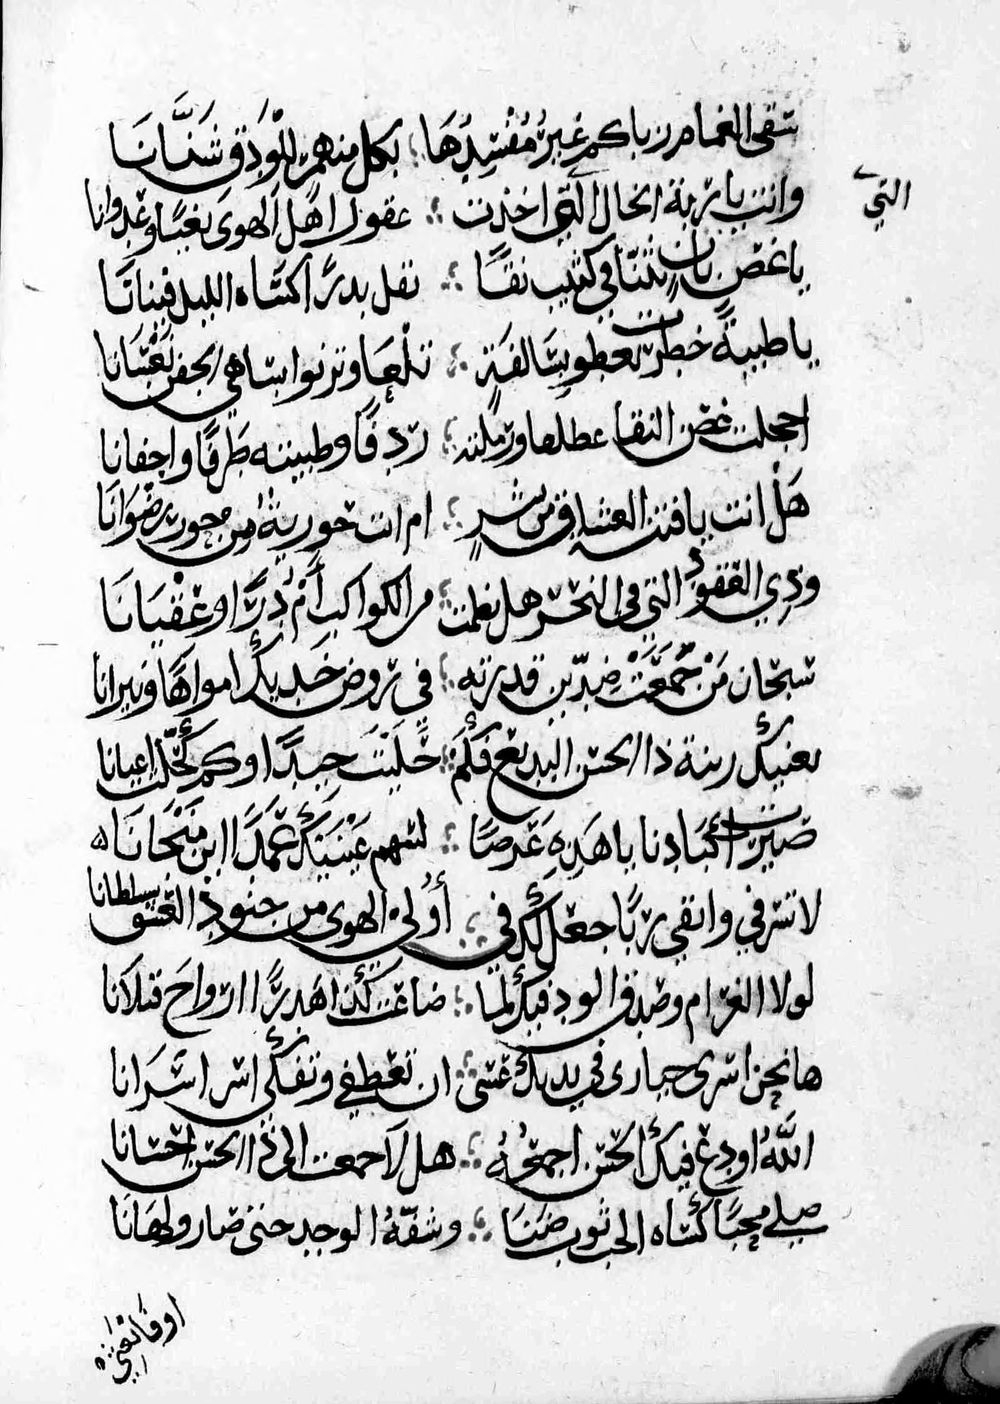 سقى الغمام رباكم غير مفسدها ∴ بكل منهمر الودق شنانا
وانت يا ربة الخال التي اخذت ∴ عقول اهل الهوى بغيا وعدوانا
التي
يا غصن بان تثنا في كثيب نقا ∴ تقل بدرا كساه الليل فينانا
يا ظبية خطرت تعطو بسالفة ∴ تلعا وترنوا بساهي الجفن نعسانا
اخجلت غصن النقا عطفا ورملته ∴ ردفا وظبيته طرفا واجفانا
هل انت يا فتنة العشاق من بشر ∴ ام انت حورية من حور رضوانا
وذي العقود التي في النحر هل نظمت ∴ من الكواكب أم درا وعقيانا
سبحان من جمعت ضدين قدرته ∴ في روض خديك امواها ونيرانا
يهنيك ربة ذا الحسن البديع فكم ∴ حليت جيدا وكم كحلت اعيانا
صيرت اكبادنا يا هذه غرضا ∴ لسهم عينيك عمدا اين منحانا
لا تسرفي واتقي ربا جعل لك في ∴ أولي الهوى من جنود العشق سلطانا
لولا الغرام وصدق الود فيك لما ∴ ضاعت كذا هدرا ارواح قتلانا
ها نحن اسرى حيارى في يديك عسى ∴ ان تعطفي وتفكي اسر اسرانا
الله اودع فيك الحسن اجمعه ∴ هلا جمعت الى ذا الحسن احسانا
صلي محبا كساه الحب ثوب ضنا ∴ وشفه الوجد حتى صار ولهانا
او فانعي